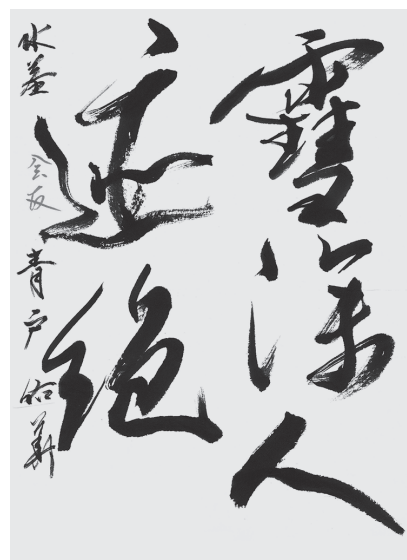 雪深人
迹絶
水茎会友青戸佑華